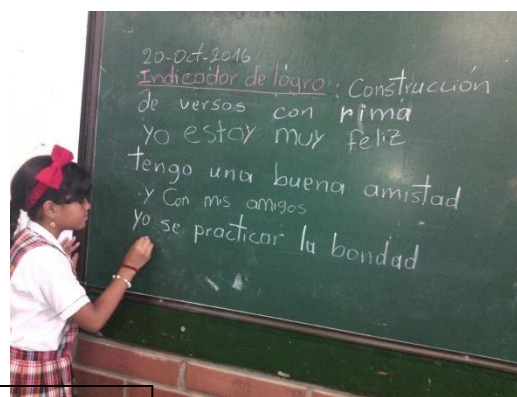 20-Oct-2016
Indicador de lógro : Construcción
de versos con rima
Yo estoy muy feliz
tengo una buena amistad
y Con mis amigos
yo se practicar la bondad